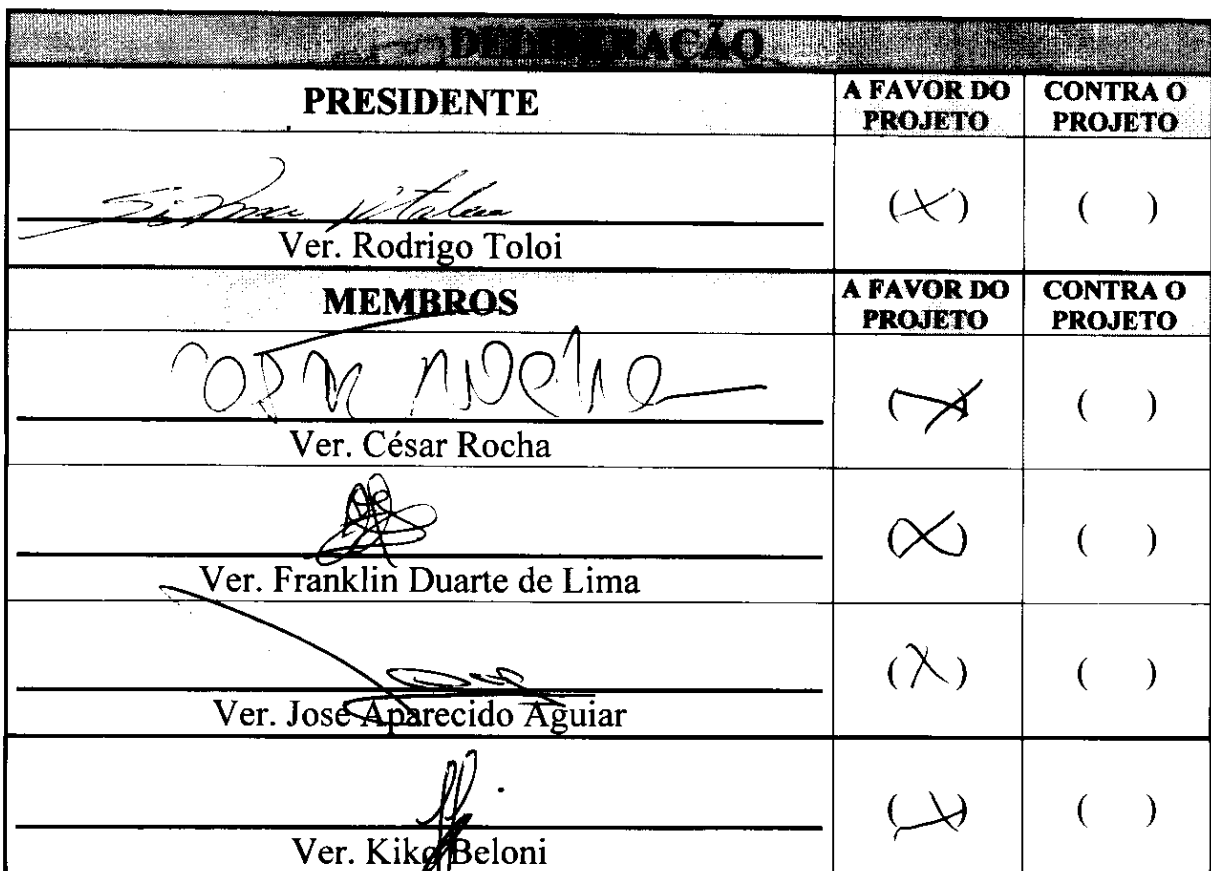 DELIBERAÇÃO
PRESIDENTE
A FAVOR DO PROJETO
CONTRA O PROJETO
(X)
( )
Ver. Rodrigo Toloi
MEMBROS
A FAVOR DO PROJETO
CONTRA O PROJETO
(X)
( )
Ver. César Rocha
(X)
( )
Ver. Franklin Duarte de Lima
(X)
( )
Ver. José Aparecido Aguiar
(X)
( )
Ver. Kiko Beloni